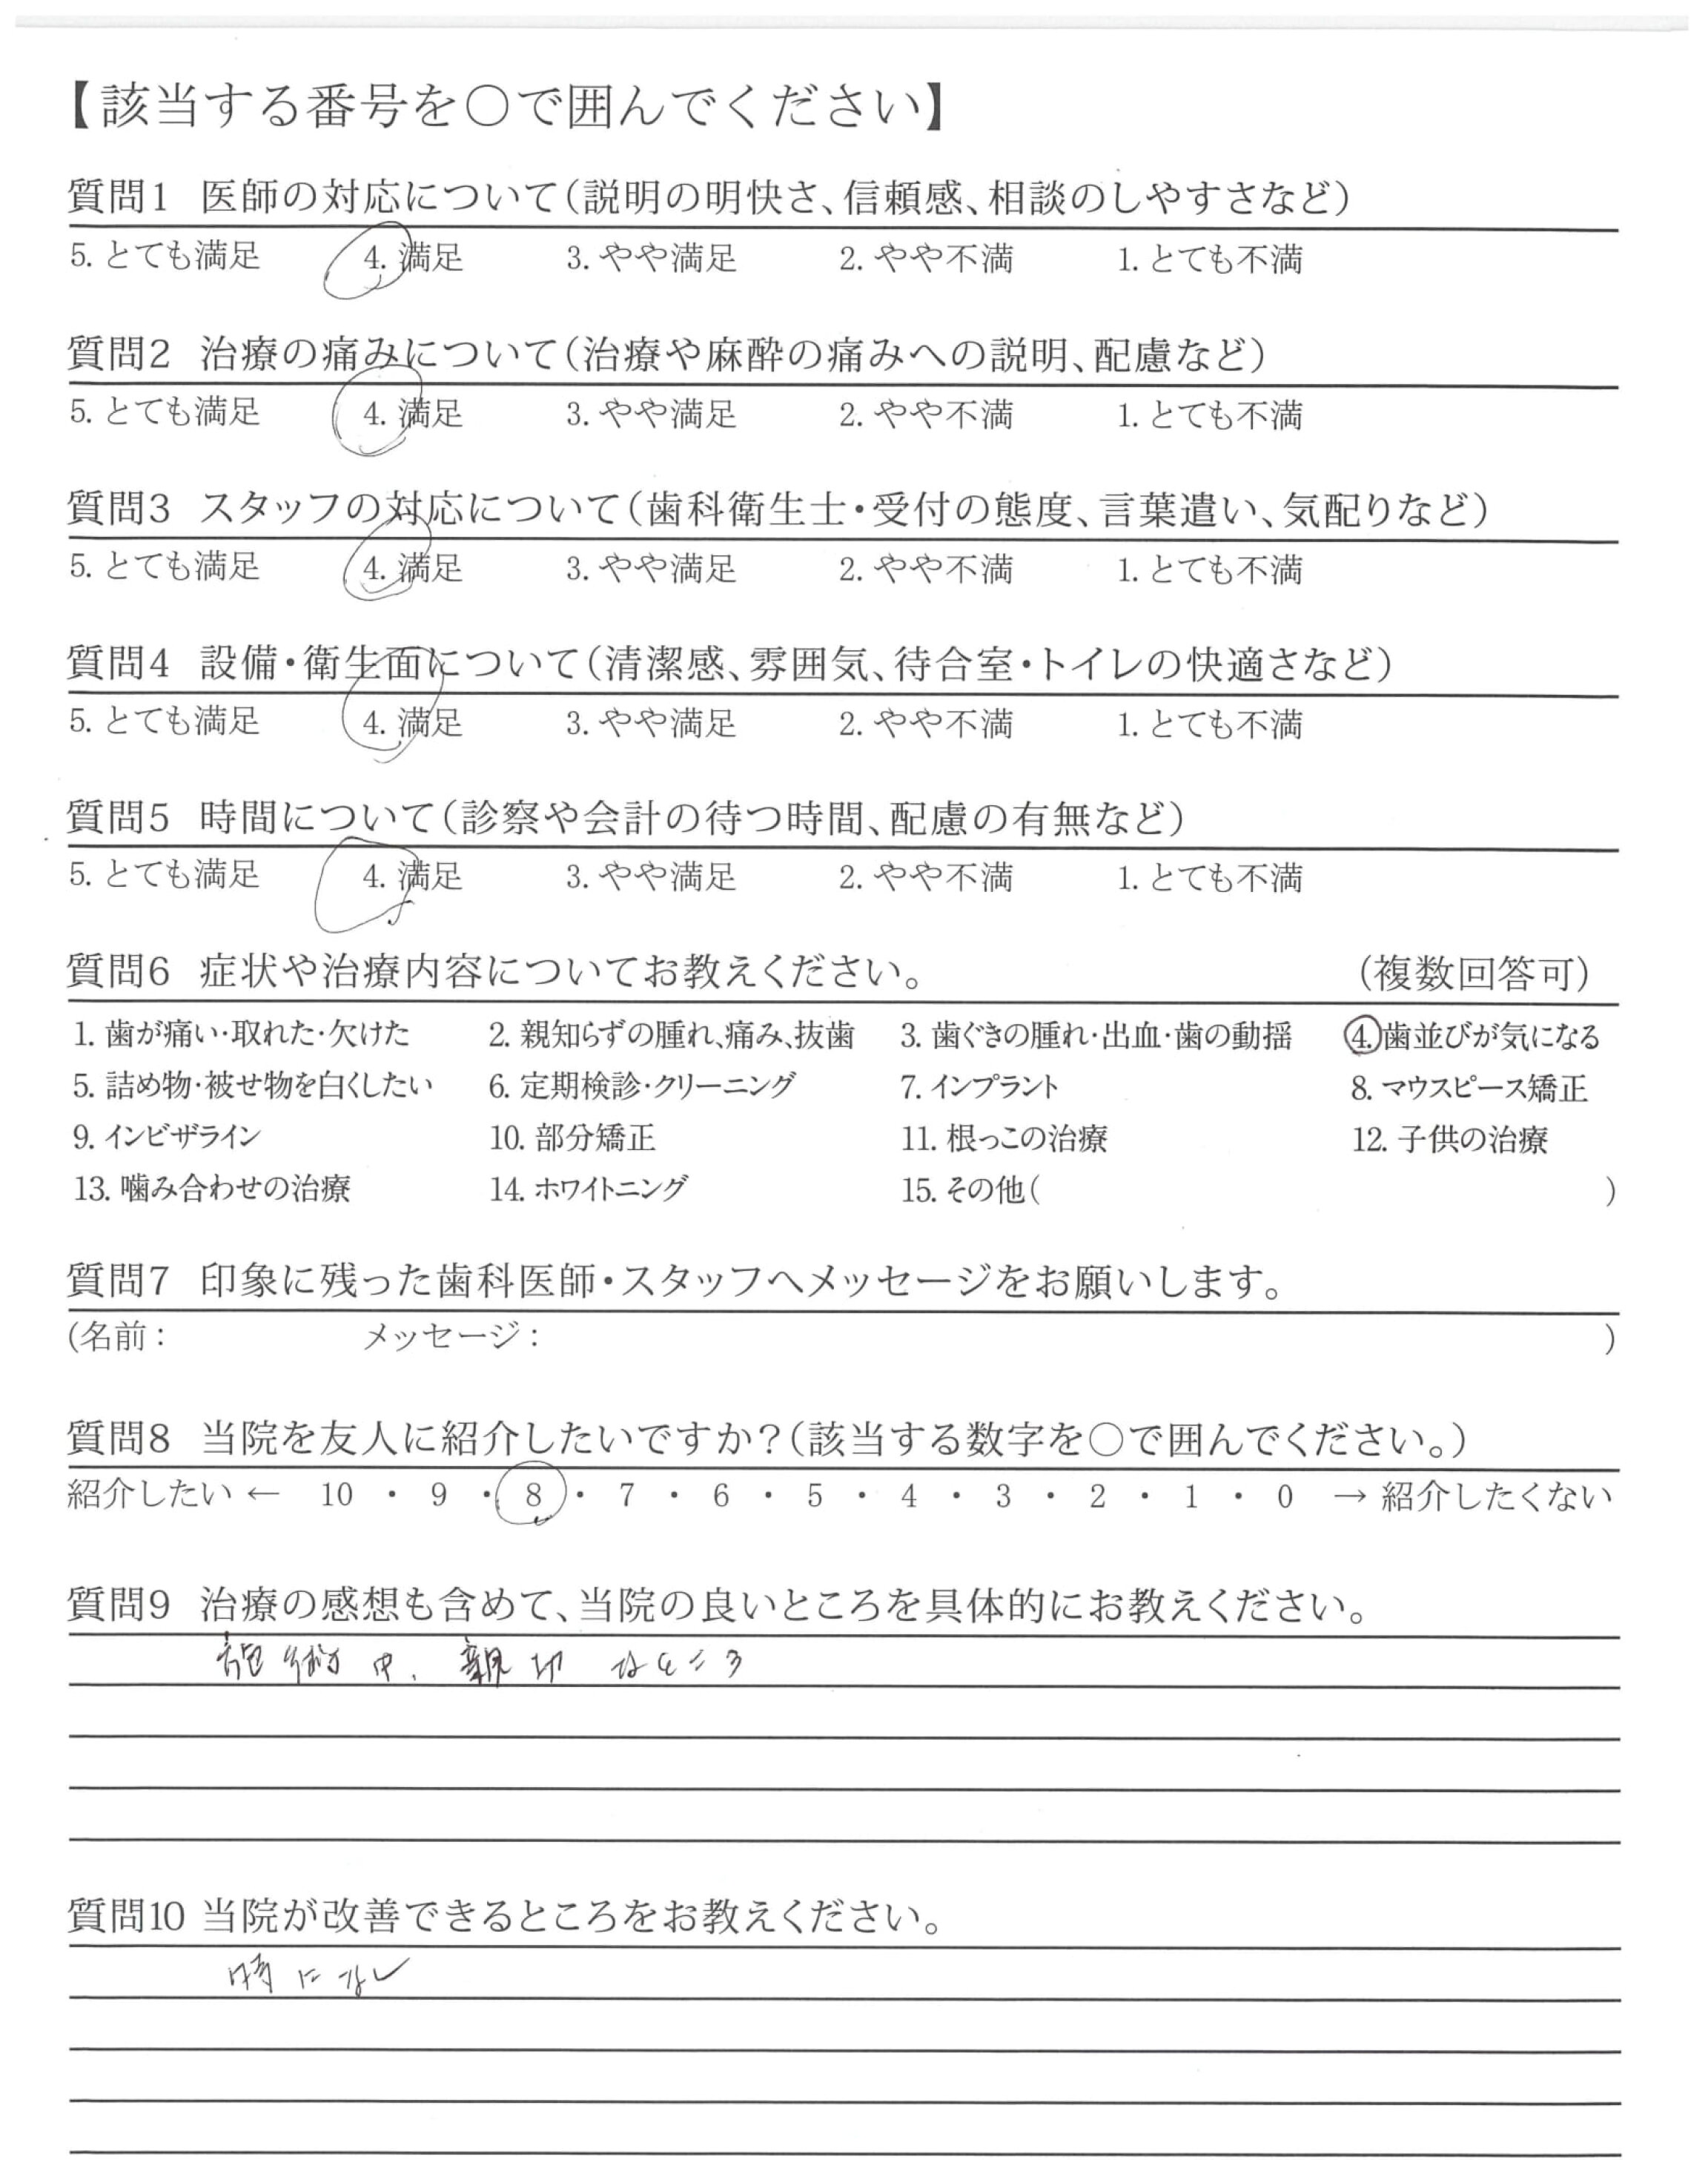 【該当する番号を○で囲んでください】
質問1 医師の対応について(説明の明快さ、信頼感、相談のしやすさなど)
5. とても満足 4. 満足 3. やや満足 2. やや不満 1. とても不満
質問2 治療の痛みについて(治療や麻酔の痛みへの説明、配慮など)
5. とても満足 4. 満足 3. やや満足 2. やや不満 1. とても不満
質問3 スタッフの対応について(歯科衛生士・受付の態度、言葉遣い、気配りなど)
5. とても満足 4. 満足 3. やや満足 2. やや不満 1. とても不満
質問4 設備・衛生面について(清潔感、雰囲気、待合室・トイレの快適さなど)
5. とても満足 4. 満足 3. やや満足 2. やや不満 1. とても不満
質問5 時間について(診察や会計の待つ時間、配慮の有無など)
5. とても満足 4. 満足 3. やや満足 2. やや不満 1. とても不満
質問6 症状や治療内容についてお教えください。 (複数回答可)
1. 歯が痛い・取れた・欠けた 2. 親知らずの腫れ、痛み、抜歯 3. 歯ぐきの腫れ・出血・歯の動揺 4. 歯並びが気になる
5. 詰め物・被せ物を白くしたい 6. 定期検診・クリーニング 7. インプラント 8. マウスピース矯正
9. インビザライン 10. 部分矯正 11. 根っこの治療 12. 子供の治療
13. 噛み合わせの治療 14. ホワイトニング 15. その他( )
質問7 印象に残った歯科医師・スタッフへメッセージをお願いします。
(名前: メッセージ: )
質問8 当院を友人に紹介したいですか?(該当する数字を○で囲んでください。)
紹介したい ← 10 ・ 9 ・ 8 ・ 7 ・ 6 ・ 5 ・ 4 ・ 3 ・ 2 ・ 1 ・ 0 → 紹介したくない
質問9 治療の感想も含めて、当院の良いところを具体的にお教えください。
施術中、親切なところ
質問10 当院が改善できるところをお教えください。
特になし